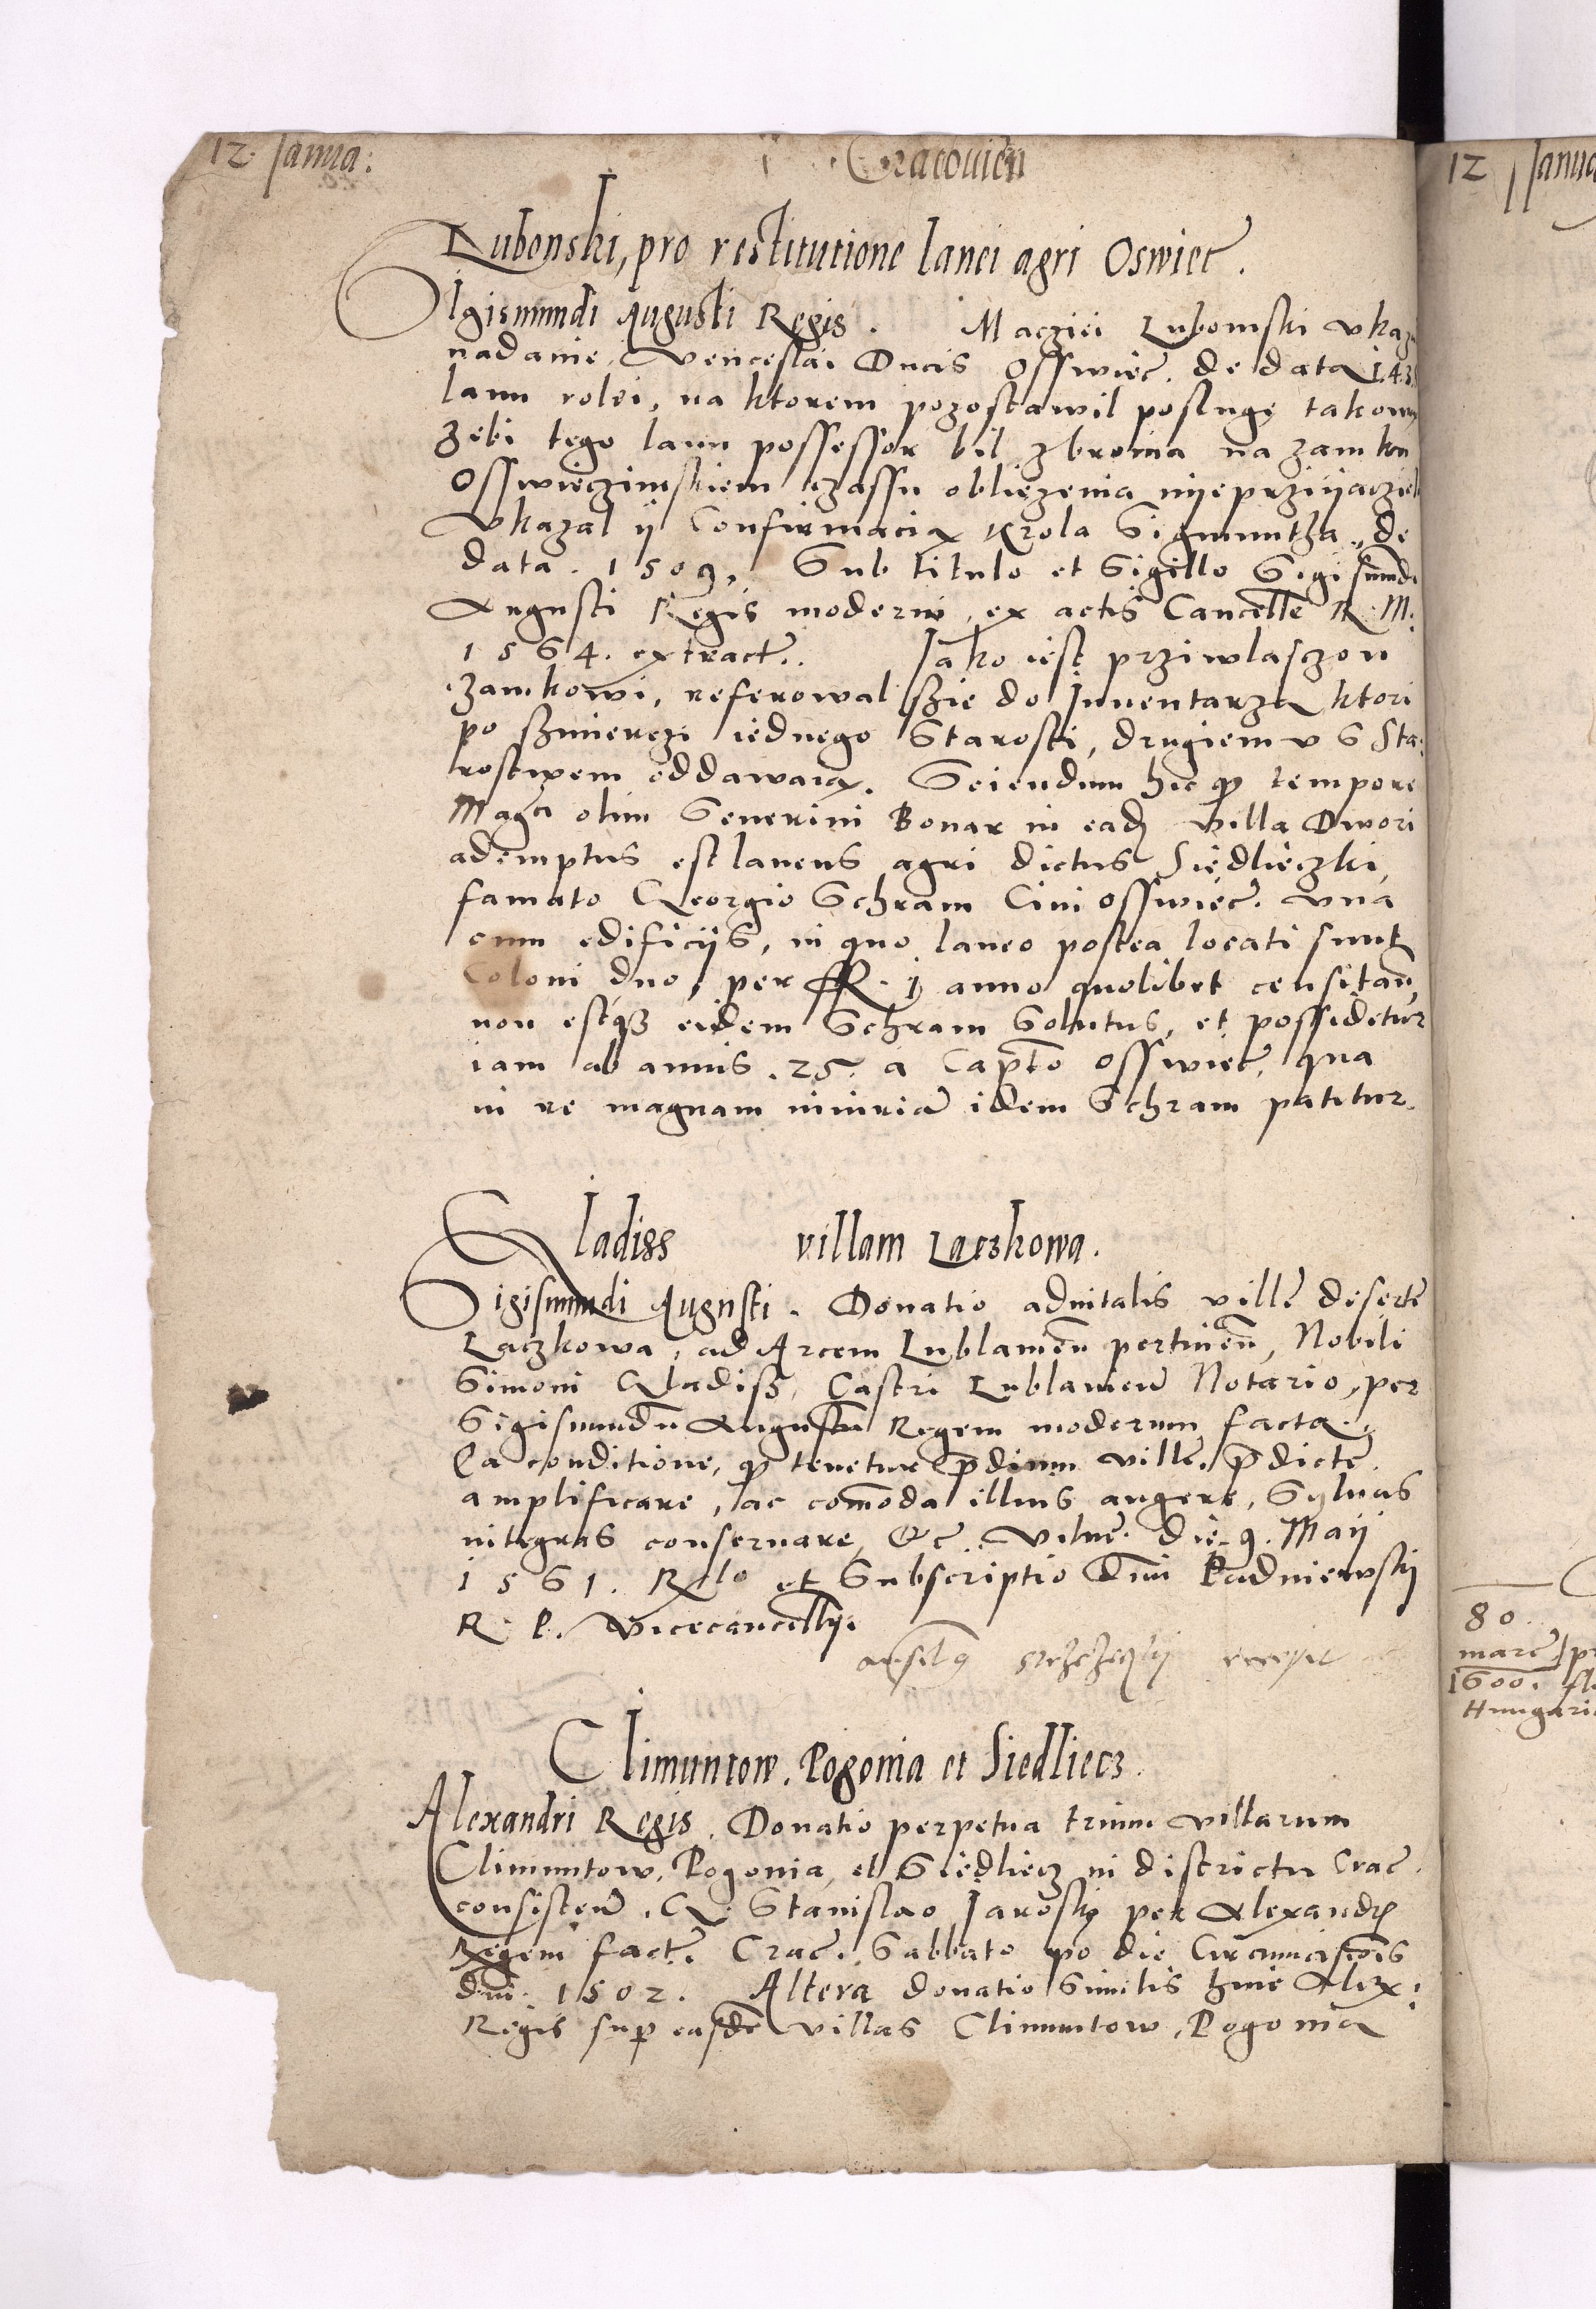 12. Janua: Cracouien
Lubonski, pro restitutione lanei agri Oswiec.
Sigismundi Augusti Regis. Macziei Lubomski vkaza
nadanie, Venceslai Ducis Osswiec. de data 1.4.3
lanu rolei, na ktorem pozostawil poslugę takow
zebi tego lanu possessor bil z bronia na zamku
Osswieczimskiem czassu oblięzenia niyeprziyacziel
Vkazal ij Confirmacią Krola Sigmuntha, de
data. 1509, Sub titulo et Sigillo Sigismundi
Augusti Regis moderni, ex actis Cancelle R. M.
1564. extract. Jako iest przywlasczon
zamkowi, referowal szie do Jnuentarza ktori
po szmierczi iednego Starosti, drugiem v S Sta:
rostwem oddawaią. Sciendum hic quod tempore
Magci olim Seuerini Bonar in eadem villa Dwori
ademptus est laneus agri dictus Siędlieczki,
famato Georgio Schram Ciui Osswiec. vna
cum edificijs, in quo laneo postea locati sunt
Coloni duo, per R. j anno quolibet censitan,
non estque eidem Schram Solutus, et possidetur
iam ab annis. 25. a Capto Osswiec, qua
in re magnam iniuriam idem Schram patitur.
Gladiss villam Laczkowa.
Sigismundi Augusti. Donatio aduitalis ville deserte
Laczkowa, ad Arcem Lublamen pertinen, Nobili
Simoni Gladiss, Castri Lublamen Notario, per
Sigismundu Augustu Regem modernum facta.
Ea conditione, quod tenetur predium ville predicte
amplificare, ac comoda illius augere, Syluas
integras conseruare, &c. Vilne. die. 9. Maij
1561. Rlo et Subscriptio Dni Padniewskij
R. P. Vicecancellij.
Climuntow. Pogonia et Siedliecz.
Alexandri Regis. Donatio perpetua trium villarum
Climuntow, Pogonia, et Siędliecz in districtu Crac.
consisten. G. Stanislao Jarosky per Alexandrum
Regem fact. Crac. Sabbato po die Circumcisionis
dni. 1502. Altera donatio Similis huic Alex:
Regis sup easde villas Climuntow, Pogonia
12 Janua
80
marc pr
1600. fl
Hungari